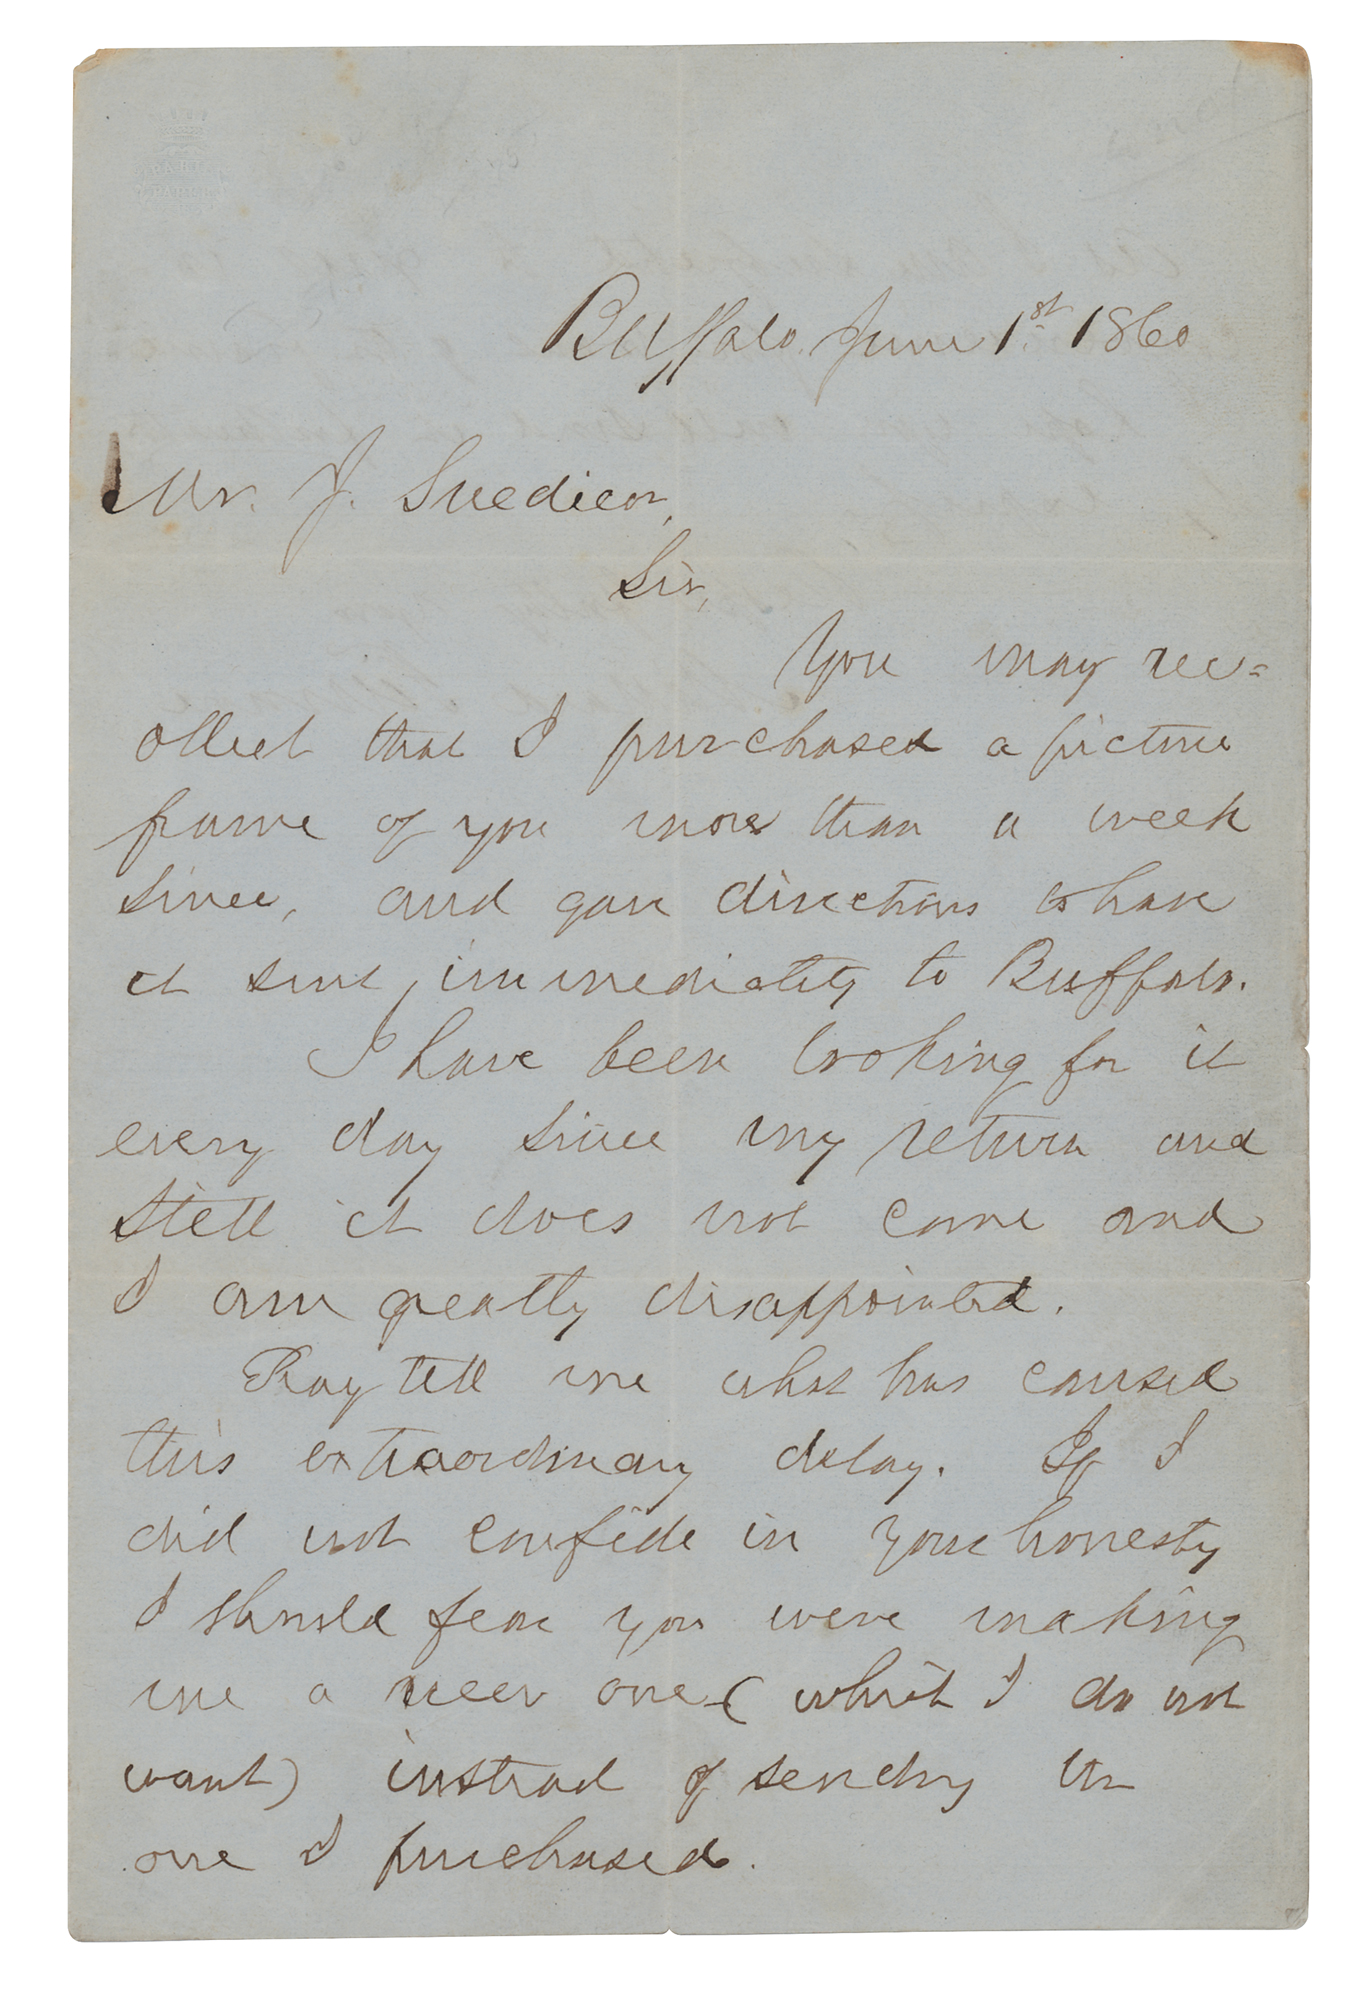 Buffalo, June 1st 1860
Mr. J. Snedicor,
Sir,
You may rec=
ollect that I purchased a picture
frame of you more than a week
since, and gave directions to have
it sent immediately to Buffalo.
I have been looking for it
every day since my return and
still it does not come and
I am greatly disappointed.
Pray tell me what has caused
this extraordinary delay. If I
did not confide in your honesty
I should fear you were making
me a new one (which I do not
want) instead of sending the
one I purchased.